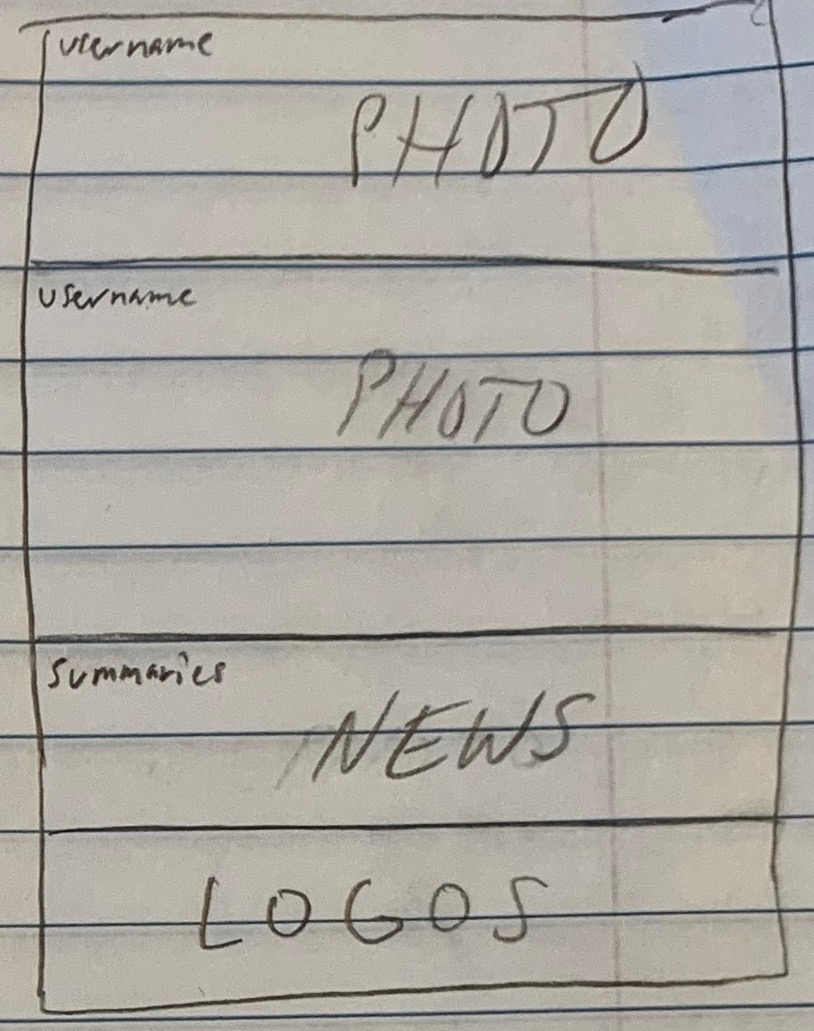 username
PHOTO
username
PHOTO
Summaries
NEWS
LOGOS